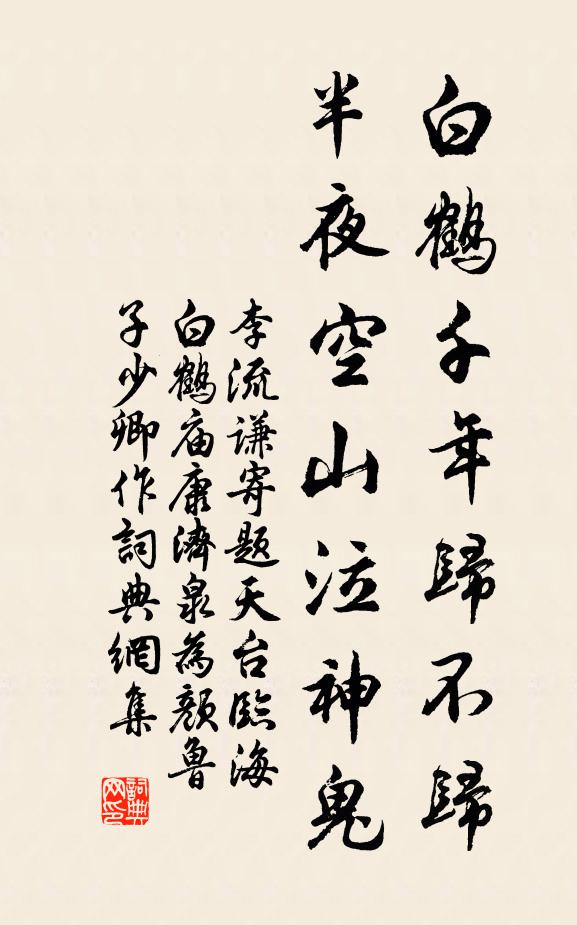 白鶴千年歸不歸
半夜空山泣神鬼
李流謙寄題天台臨海
白鶴庙康濟泉為顏魯
子少卿作詞典網集
詞典
网印